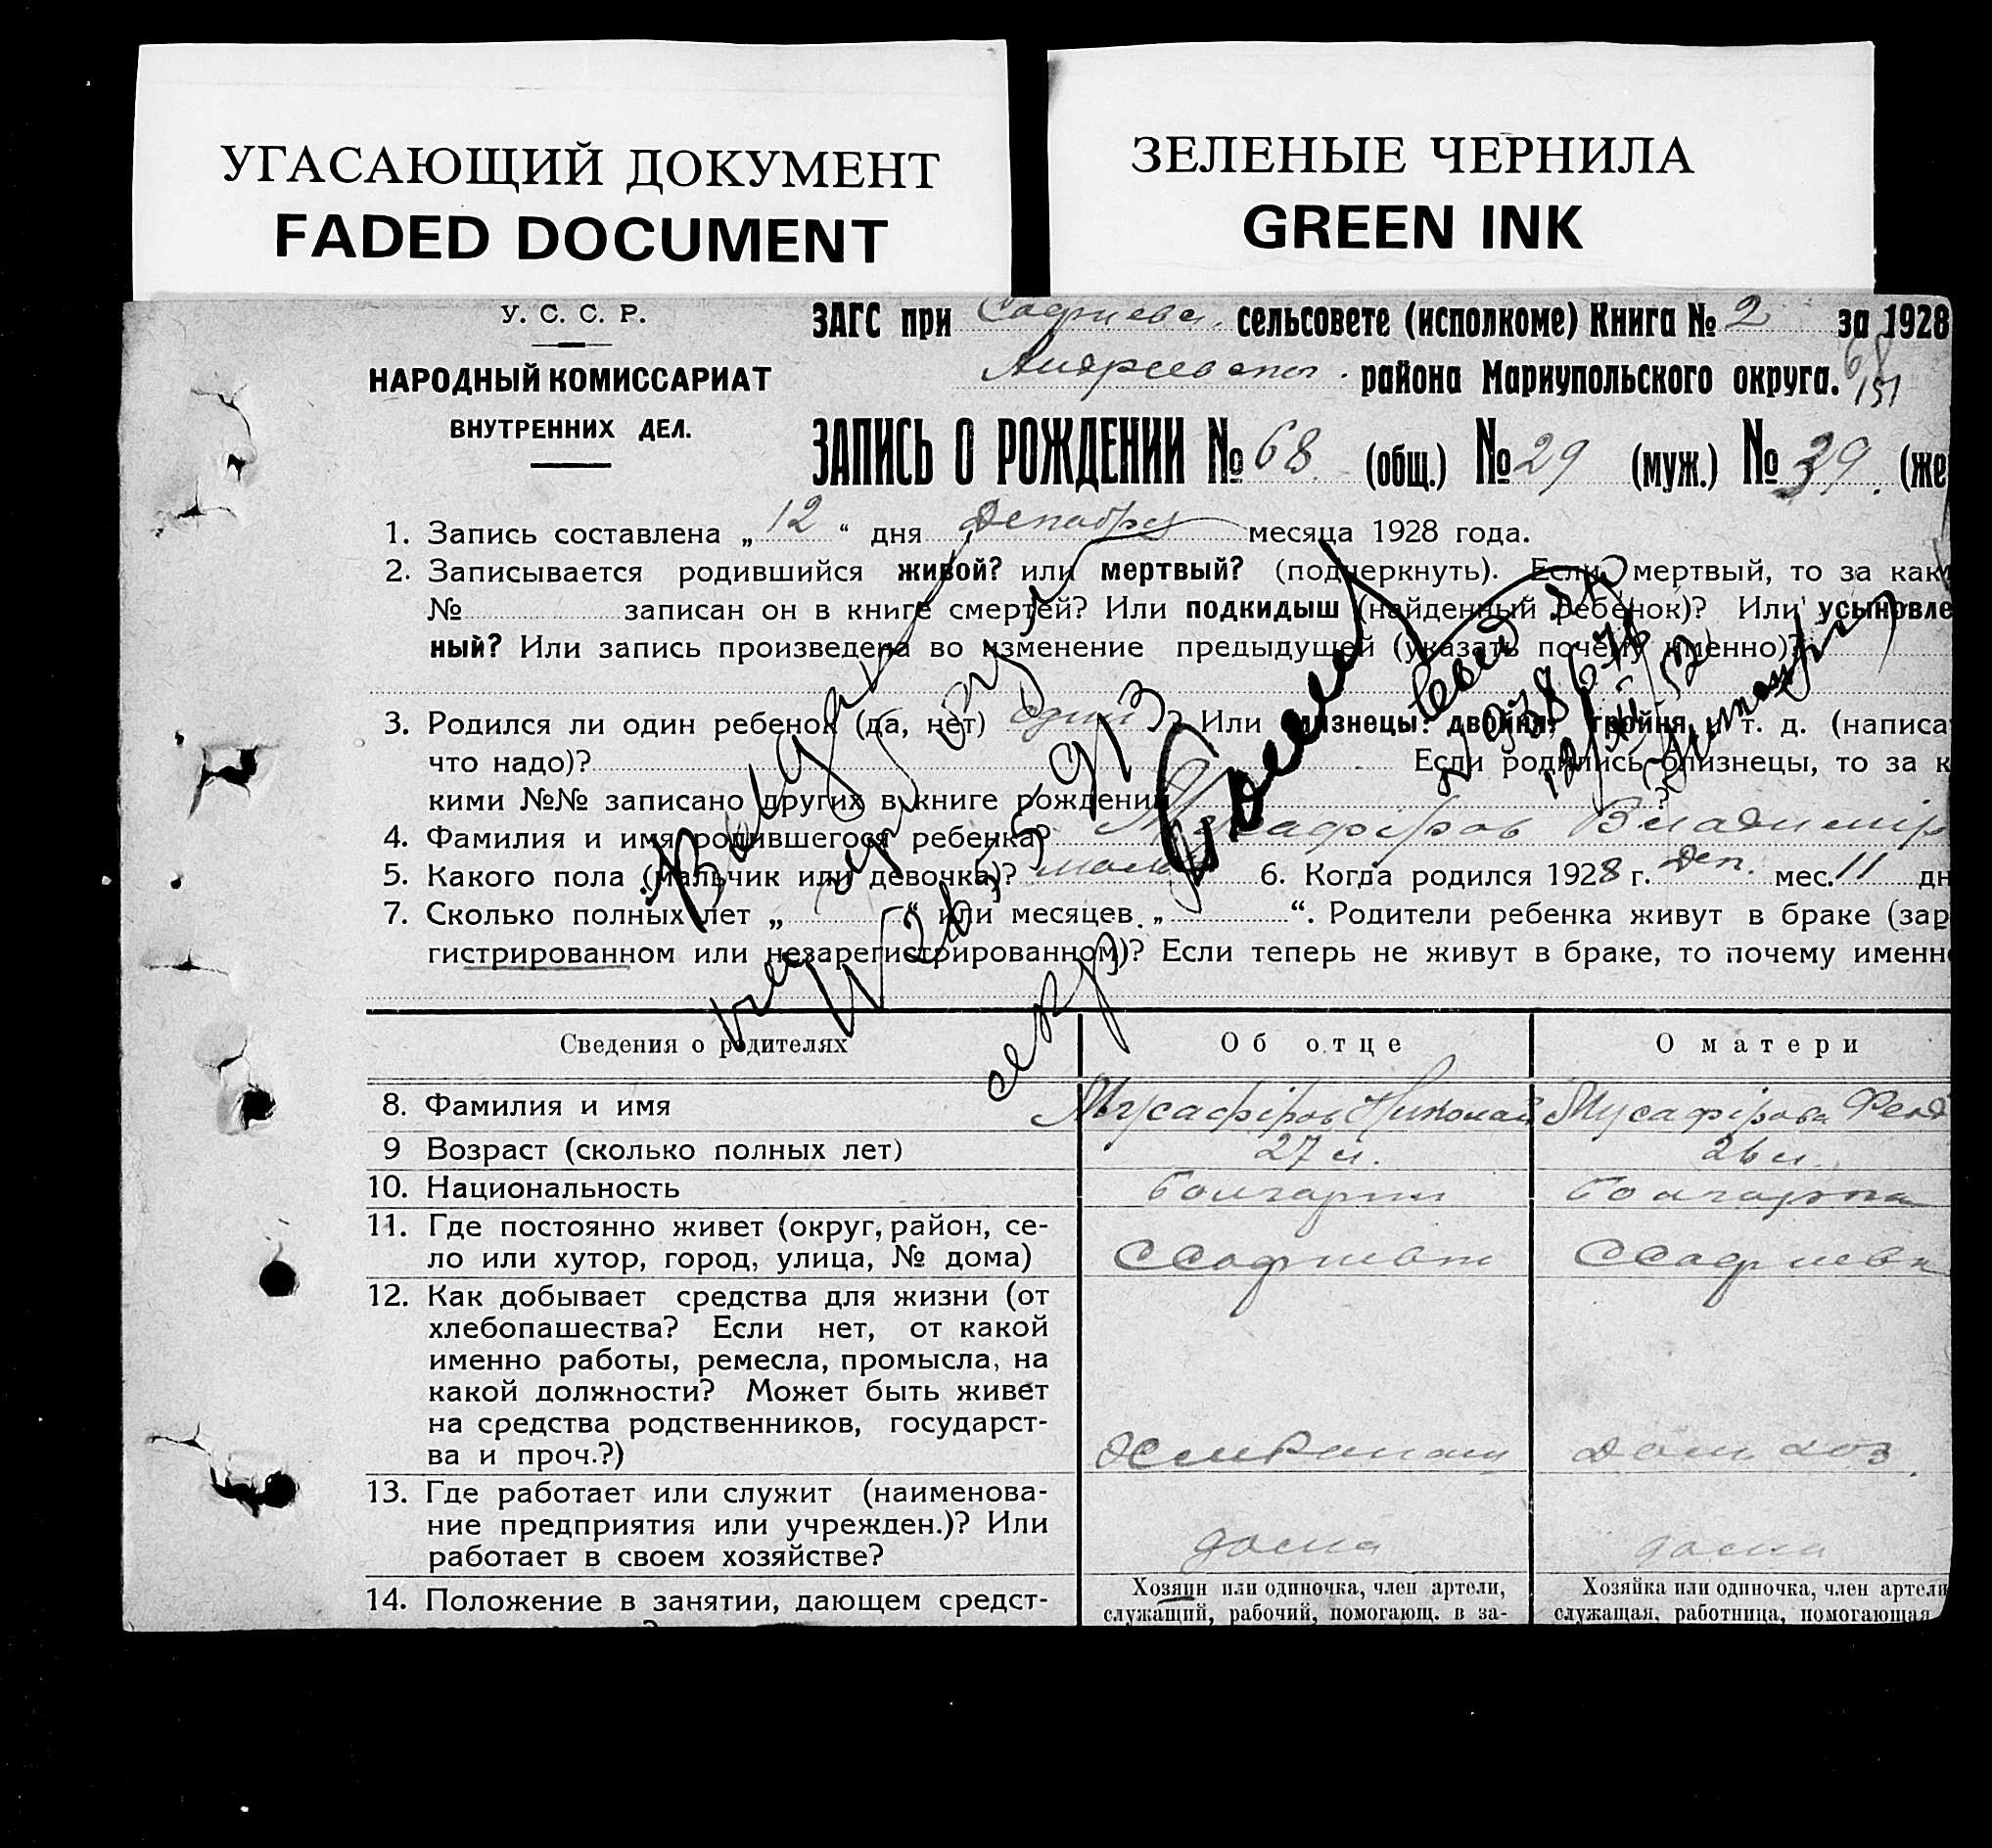 УГАСАЮЩИЙ ДОКУМЕНТ
FADED DOCUMENT
ЗЕЛЕНЫЕ ЧЕРНИЛА
GREEN INK
У. С. С. Р.
НАРОДНЫЙ КОМИССАРИАТ
ВНУТРЕННИХ ДЕЛ.
ЗАГС при Софиевс. сельсовете (исполкоме) Книга № 2 за 1928
Андреевског. района Мариупольского округа. 68
151
ЗАПИСЬ О РОЖДЕНИИ № 68 (общ.) № 29 (муж.) № 39. (же
1. Запись составлена „ 12 “ дня Декабря месяца 1928 года.
2. Записывается родившийся живой? или мертвый? (подчеркнуть). Если мертвый, то за как
№ записан он в книге смертей? Или подкидыш (найденный ребенок)? Или усыновле
ный? Или запись произведена во изменение предыдущей (указать почему именно)?
3. Родился ли один ребенок (да, нет) один ? Или близнецы: двойня, тройня и т. д. (написа
что надо)? Если родились близнецы, то за к
кими №№ записано других в книге рождений ?
4. Фамилия и имя родившегося ребенка? Мусафіров Владимір
5. Какого пола (мальчик или девочка)? мальч 6. Когда родился 1928 г. Дек. мес. 11 дн
7. Сколько полных лет „ “ или месяцев „ “. Родители ребенка живут в браке (зар
гистрированном или незарегистрированном)? Если теперь не живут в браке, то почему именно
Выдан
№ 265913
Сведения о родителях Об отце О матери
8. Фамилия и имя Мусафіров Николай Мусафірова
9 Возраст (сколько полных лет) 27 л. 26 л.
10. Национальность болгарин болгарка
11. Где постоянно живет (округ, район, се-
ло или хутор, город, улица, № дома)
12. Как добывает средства для жизни (от
хлебопашества? Если нет, от какой
именно работы, ремесла, промысла, на
какой должности? Может быть живет
на средства родственников, государст-
ва и проч.?) дом хоз.
13. Где работает или служит (наименова-
ние предприятия или учрежден.)? Или
работает в своем хозяйстве? дома дома
14. Положение в занятии, дающем средст-
Хозяин или одиночка, член артели,
служащий, рабочий, помогающ. в за-
Хозяйка или одиночка, член артели
служащая, работница, помогающая